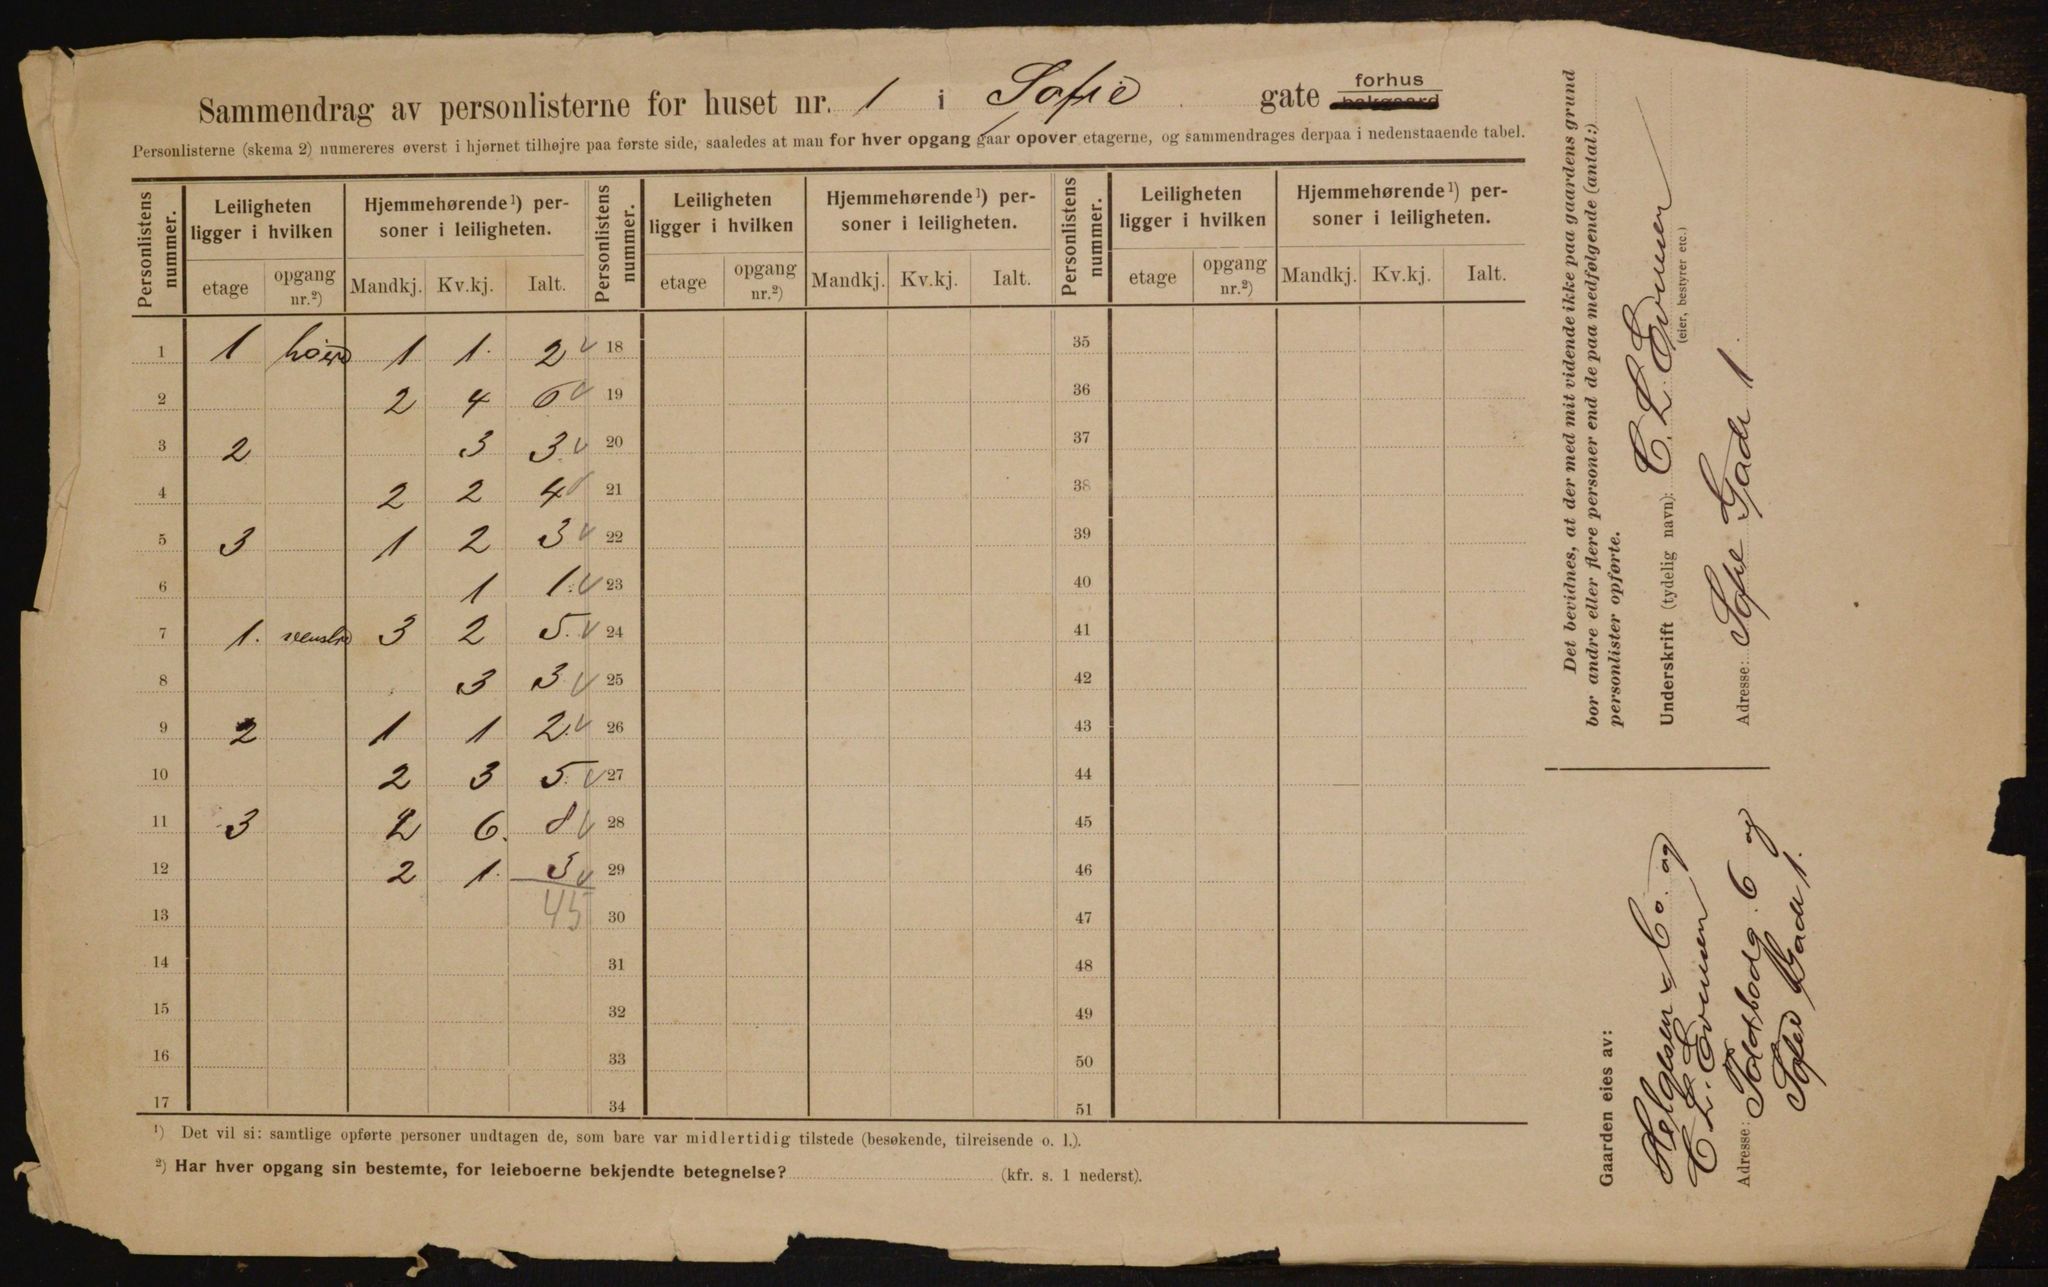 Sammendrag av personlisterne for huset nr. 1 i Sofie gate forhus bakgaard
Personlisterne (skema 2) numereres øverst i hjørnet tilhøjre paa første side, saaledes at man for hver opgang gaar opover etagerne, og sammendrages derpaa i nedenstaaende tabel.
Personlistens nummer. Leiligheten ligger i hvilken Hjemmehørende ¹) personer i leiligheten. Personlistens nummer. Leiligheten ligger i hvilken Hjemmehørende ¹) personer i leiligheten. Personlistens nummer. Leiligheten ligger i hvilken Hjemmehørende ¹) personer i leiligheten.
etage opgang nr.²) Mandkj. Kv.kj. Ialt. etage opgang nr.²) Mandkj. Kv.kj. Ialt. etage opgang nr.²) Mandkj. Kv.kj. Ialt.
1 1 høire 1 1. 2 18 35
2 2 4 6 19 36
3 2 3 3 20 37
4 2 2 4 21 38
5 3 1 2 3 22 39
6 1 1. 23 40
7 1. venstre 3 2 5. 24 41
8 3 3 25 42
9 2 1 1 2. 26 43
10 2 3 5. 27 44
11 3 2 6. 8 28 45
12 2 1. 3 29 46
13 45 30 47
14 31 48
15 32 49
16 33 50
17 34 51
¹) Det vil si: samtlige opførte personer undtagen de, som bare var midlertidig tilstede (besøkende, tilreisende o. l.).
²) Har hver opgang sin bestemte, for leieboerne bekjendte betegnelse? (kfr. s. 1 nederst).
Det bevidnes, at der med mit vidende ikke paa gaardens grund
bor andre eller flere personer end de paa medfølgende (antal:)
personlister opførte.
Underskrift (tydelig navn): C. L. Evensen
(eier, bestyrer etc.)
Adresse: Sofie Gade 1.
Gaarden eies av:
Helgesen & Co. og
C. L. Evensen
Adresse: 6 og
Sofie Gade 1.